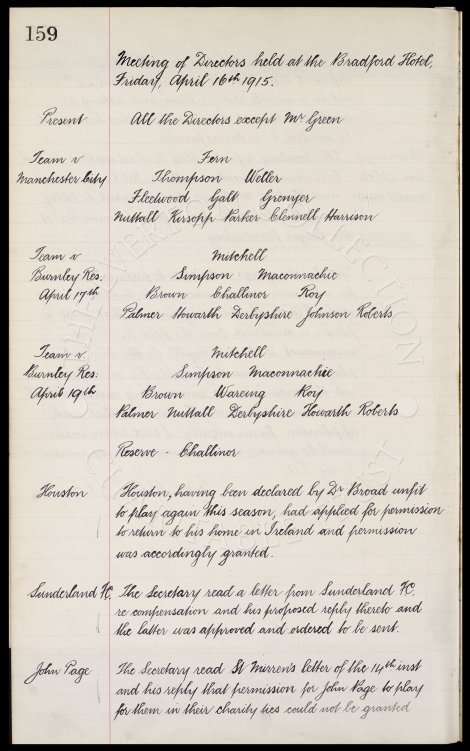 159
Meeting of Directors held at the Bradford Hotel,
Friday, April 16th 1915.
Present All the Directors except Mr Green
Team v Fern
Manchester City Thompson Weller
Fleetwood Galt Grenyer
Nuttall Kirsopp Parker Clennell Harrison
Team v Mitchell
Burnley Res: Simpson Maconnachie
April 17th Brown Challinor Roy
Palmer Howarth Derbyshire Johnson Roberts
Team v Mitchell
Burnley Res: Simpson Maconnachie
April 19th Brown Wareing Roy
Palmer Nuttall Derbyshire Howarth Roberts
Reserve - Challinor
Houston Houston, having been declared by Dr Broad unfit
to play again this season, had applied for permission
to return to his home in Ireland and permission
was accordingly granted.
Sunderland FC. The Secretary read a letter from Sunderland FC.
re compensation and his proposed reply thereto and
the latter was approved and ordered to be sent.
John Page The Secretary read St Mirren's letter of the 14th inst
and his reply that permission for John Page to play
for them in their charity ties could not be granted
THE EVERTON COLLECTION